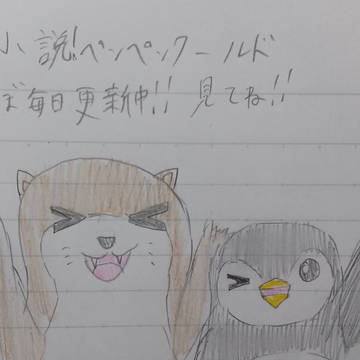 小説!ペンペンワールド
ぼ毎日更新中!! 見てね!!